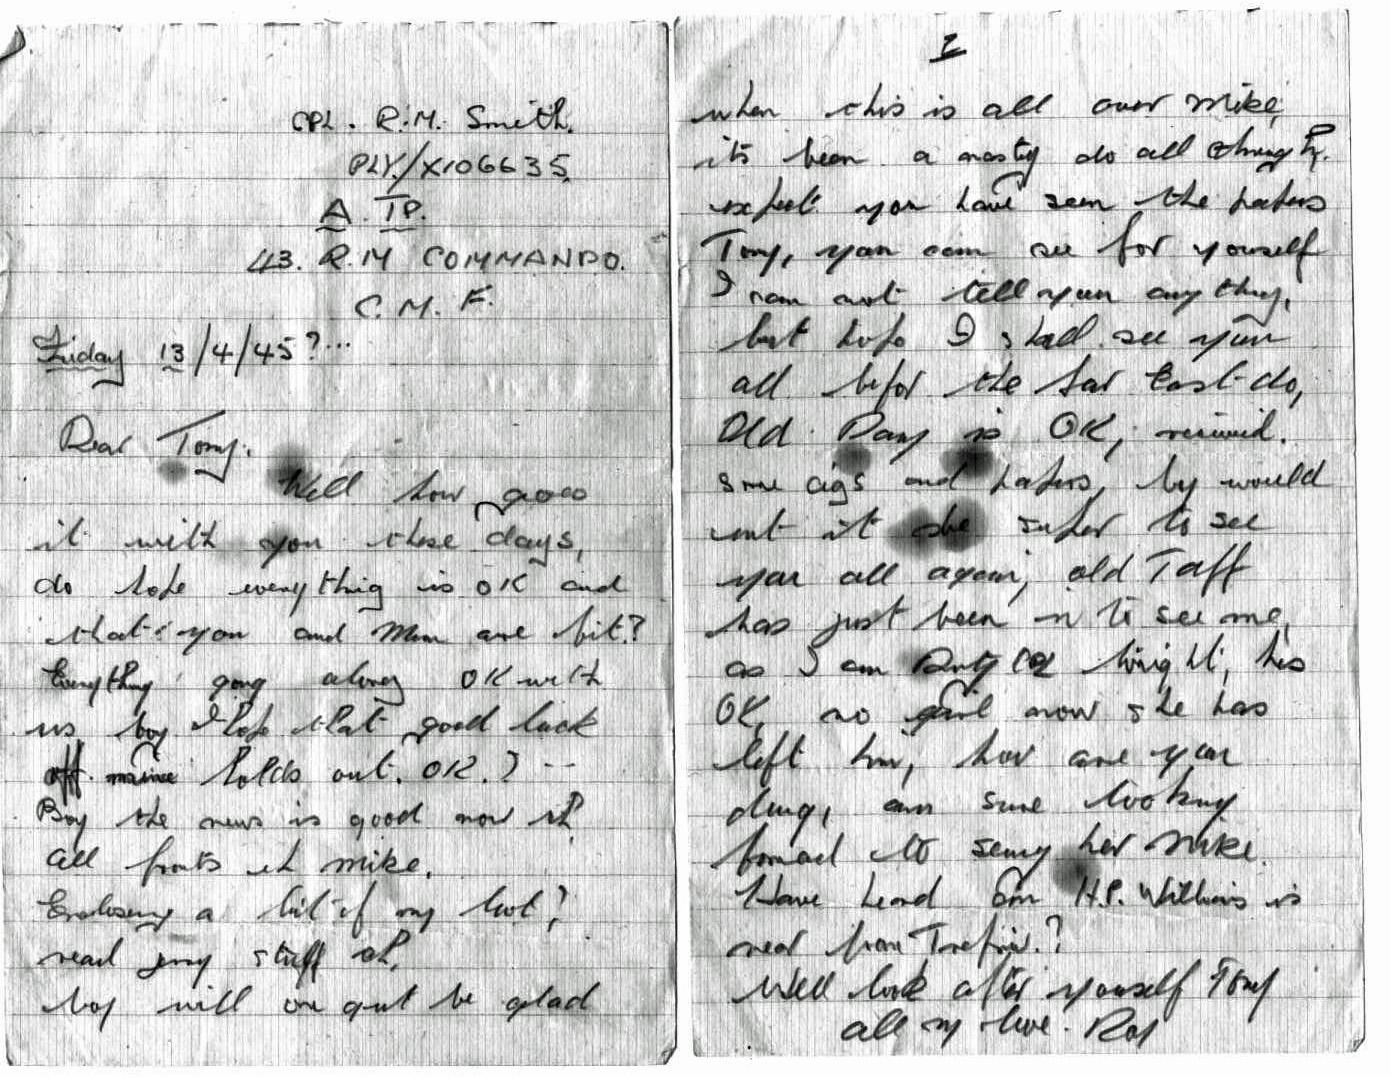 CPL. R.M. Smith.
PLY/X106635.
A. TP.
43. R.M COMMANDO.
C. M. F.
Friday 13/4/45?...
Dear Tony.
Well how goes
it with you these days,
do hope everything is OK and
that you and Mum are fit?
Everything going along OK with
us boy I hope that good luck
off mine holds out. OK.? --
Boy the news is good now
all fronts eh mike.
Enclosing a bit of my loot?
real jerry stuff eh.
boy will one
be glad
2
when this is all over mike,
its been a nasty do all through,
expect you have seen the papers
Tony, you can see for yourself
I can not tell you anything,
but hope I shall see you
all befor the far East do,
Old Dany is OK, received.
some cigs and papers, by would
unt it be super to see
you all again, old Taff
has just been in to see me,
as I am Duty
his
OK, no girl now she has
left him, how are your
am sure looking
forward to seing her Mike.
Have heard
H.P. Williams is
near from
Well look after yourself Tony
all my love. Roy